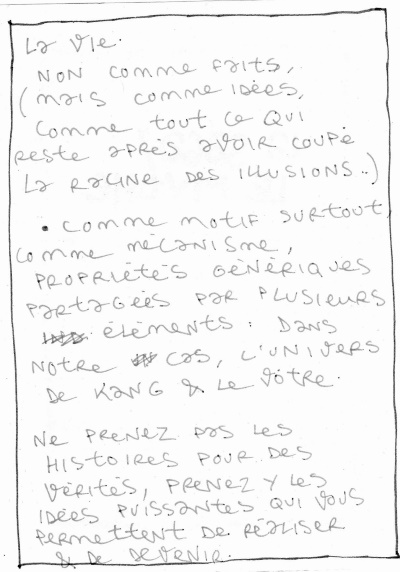 La vie.
NON comme faits,
(mais comme idées,
comme tout ce qui
reste après avoir coupé
la racine des illusions..)
• comme motif surtout,
comme mécanisme,
propriétés génériques
partagées par plusieurs
éléments : dans
notre cas, l'univers
de Kang & le vôtre.
Ne prenez pas les
histoires pour des
vérités, prenez y les
idées puissantes qui vous
permettent de réaliser
& de devenir.